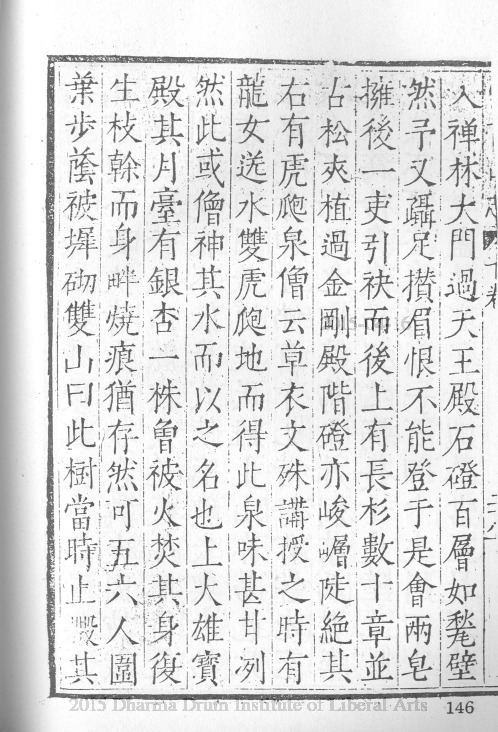 入禅林大門過天王殿石磴百層如甃壁
然予又躡足攅眉恨不能登于是會兩皂
擁後一吏引袂而後上有長杉數十章並
古松夾植過金剛殿階磴亦峻嶒陡絶其
右有虎爬泉僧云草衣文殊講授之時有
龍女送水雙虎爬地而得此泉味甚甘冽
然此或僧神其水而以之名也上大雄寳
殿其月臺有銀杏一株曽被火焚其身復
生枝榦而身畔燒痕猶存然可五六人圍
葉歩蔭被墀砌雙山曰此樹當時止燬其
2015 Dharma Drum Institute of Liberal Arts
146